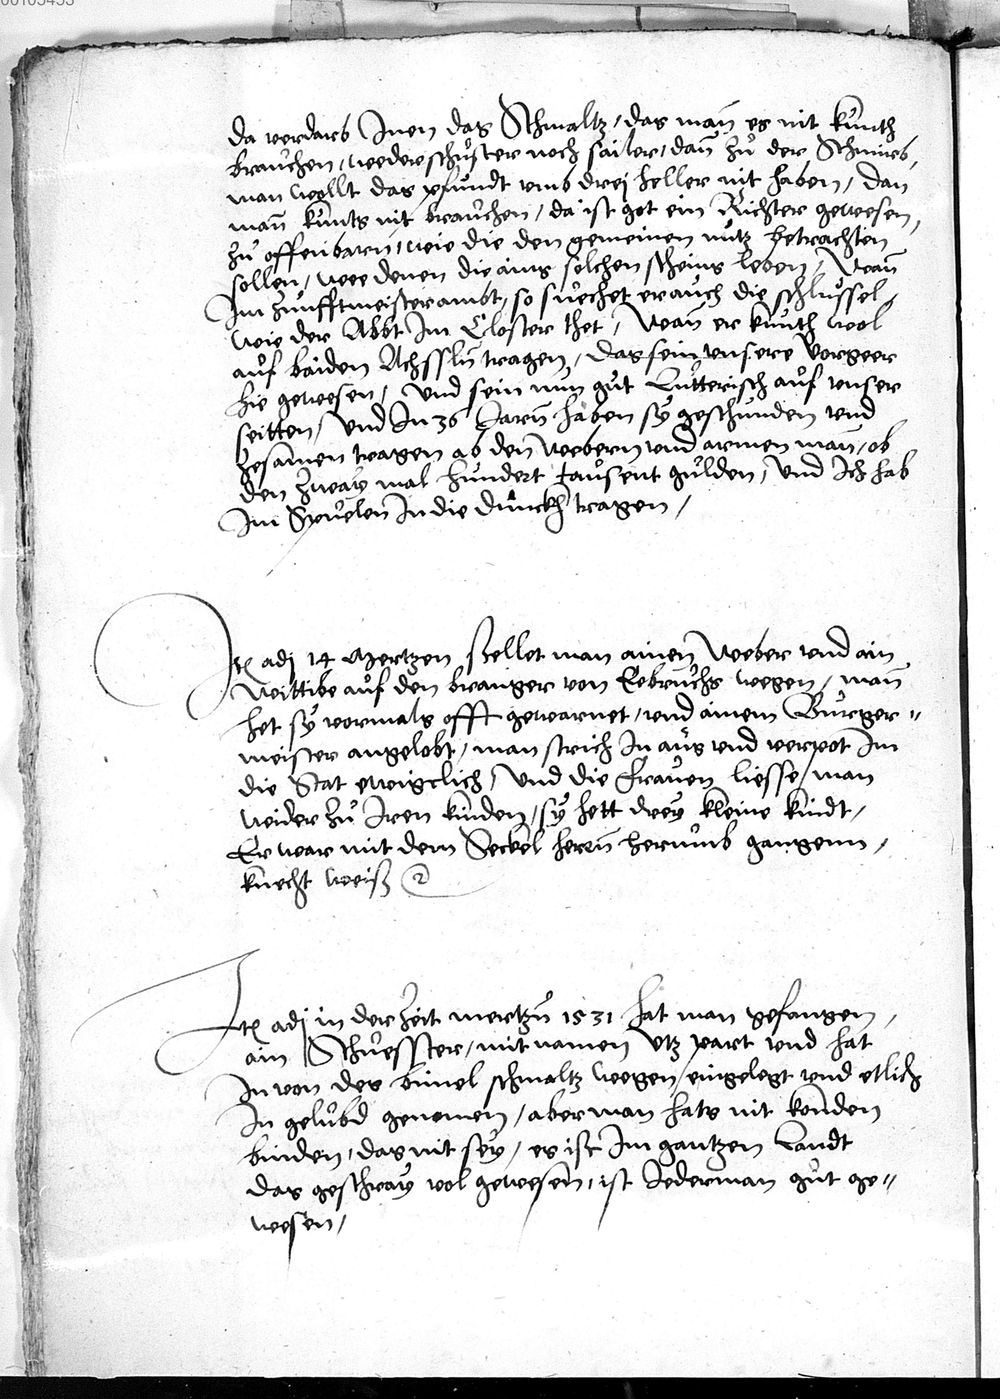 00105453
da verdarb Inen das Schmaltz, das man es nit kunth
brauchen, weder schuster noch sailer, dan zu der Schmirb,
man wollt das pfundt umb drei heller nit haben, dan
man kunts nit brauchen, da ist got ein Richter gewesen,
zu offenbarn, wie die den gemeinen nutz betrachten
sollen, wee denen die ains solchen scheins leben, Wan
Im Zunfftmeisterambt, so suechet er auch die schlussel,
wie der Abbt Im Closter thet, Wan er kunth wol
auf baiden Achsslen tragen, das sein unsere Vorgeer
hie gewesen, Und sein nun gut Lutterisch auf unser
seitten, Und In 36 Jarn haben sy geschunden und
zesamen tragen ab den webern und armen man, ob
den zway mal hundert tausent gulden, Und Ich hab
Im Spuelen In die dunckh tragen,
Itē adj 14 Mertzen stellet man ainen Weber und ain
Wittibe auf den branger von Eebruchs wegen, man
het sy vormals offt gewarnet, und ainem Burger-
meister angelobt, man strich In aus und verpot Im
die Stat ewigclich, Und die frauen liesse man
wider zu Iren kinden, sy hett drey kleine kindt,
Er war mit dem Seckel herrn herumb gangenn,
knecht weis
Itē adj in der Zeit mertzn 1531 hat man gefangen,
ain Schuesster, mit namen Utz part und hat
In von des kimel schmaltz wegen, eingelegt und etlich
In gelubd genomen, aber man hats nit konden
binden, das nit sey, es ist Im gantzen Landt
das geschray wol gewesen, ist Jederman gut ge-
wesen,